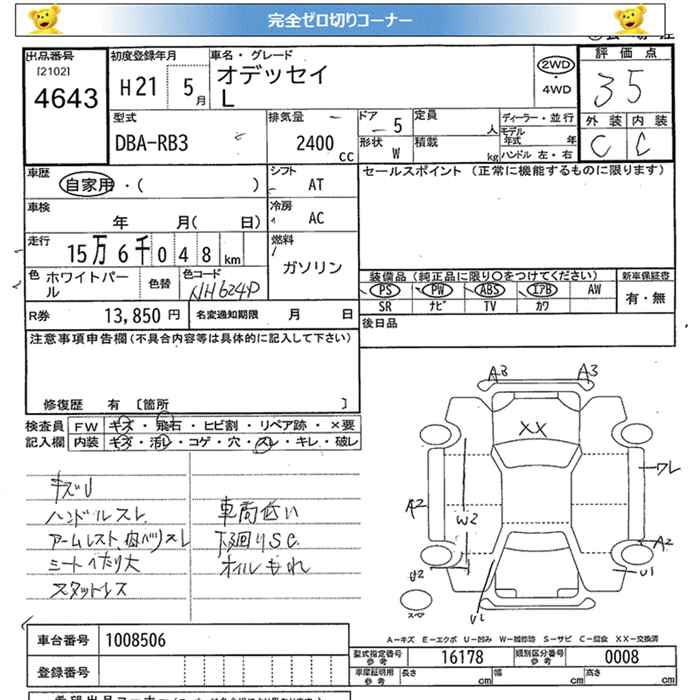 完全ゼロ切りコーナー
出品番号 初度登録年月 車名・グレード 評価点
[2102] オデッセイ 2WD
4643 H21 5月 L ・4WD 35
型式 排気量 ドア 定員 ディーラー・並行 外装 内装
DBA-RB3 2400cc 5 人 モデル年式 年 C C
形状 W 積載 kg ハンドル 左・右
車歴 シフト セールスポイント (正常に機能するものに限ります)
自家用・( ) AT
車検 冷房
年 月( 日) AC
走行 燃料
15万6千048km ガソリン
色 ホワイトパール 色替 色コード NH624P
装備品 (純正品に限り〇をつけてください) 新車保証書
PS PW ABS エアB AW 有・無
SR ナビ TV カワ
R券 13,850円 名変通知期限 月 日
後日品
注意事項申告欄 (不具合内容等は具体的に記入して下さい)
修復歴 有 [箇所 ]
検査員 FW キズ・飛石・ヒビ割・リペア跡・×要
記入欄 内装 キズ・汚レ・コゲ・穴・スレ・キレ・破レ
A3 A3
XX
ワレ
A2
W2
A2
U2 U1
スペア
キズU
ハンドルスレ
アームレスト、内バリスレ
シートヘたり大
スタットレス
車高低い
下廻りSC
オイルもれ
A-キズ E-エクボ U-凹み W-補修跡 S-サビ C-腐食 XX-交換済
車台番号 1008506
型式指定番号 参考 16178 類別区分番号 参考 0008
登録番号
車庫証明用 参考 長さ cm 幅 cm 高さ cm